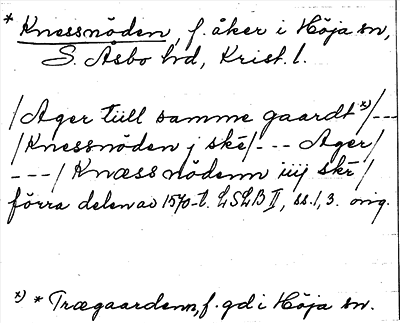 * Knessnöden, f. åker i Höja sn,
S. Åsbo hd, Krist. l.
/Ager tiill samme gaardt x)/---
/Knessnöden j skē/--- Ager/
---/Knæssnödenn iiij skē/
förra delen av 1570-t. LSLB II, ss. 1, 3. orig.
x) * Trægaardenn, f. gd i Höja sn.